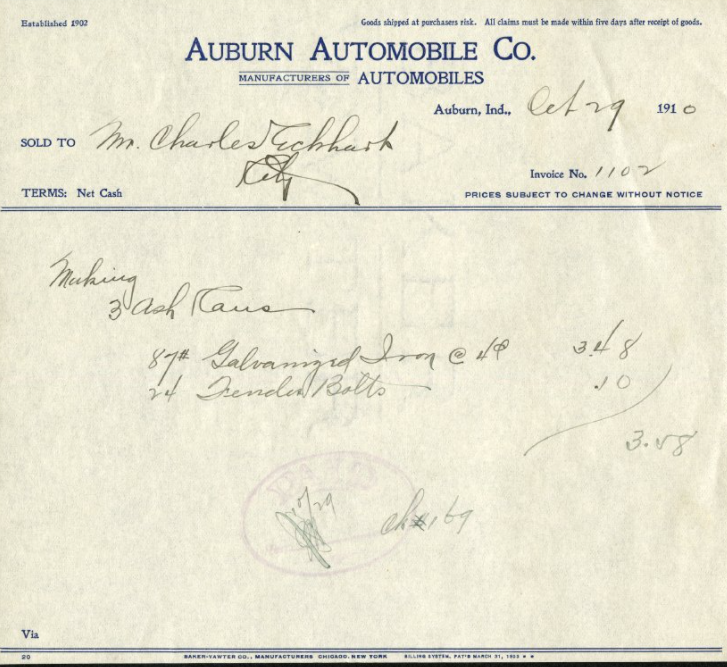 Established 1902
Goods shipped at purchasers risk. All claims must be made within five days after receipt of goods.
AUBURN AUTOMOBILE CO.
MANUFACTURERS OF AUTOMOBILES
Auburn, Ind., Oct 29 1910
SOLD TO Mr. Charles Eckhart
City
Invoice No. 1102
TERMS: Net Cash
PRICES SUBJECT TO CHANGE WITHOUT NOTICE
Making
3 Ash Kans
87# Galvanized Iron @ 4¢ 3.48
24 Fender Bolts .10
3.58
PAID
10/29
ch#169
Via
20
BAKER-VAWTER CO., MANUFACTURERS CHICAGO, NEW YORK
BILLING SYSTEM, PAT'D MARCH 31, 1903